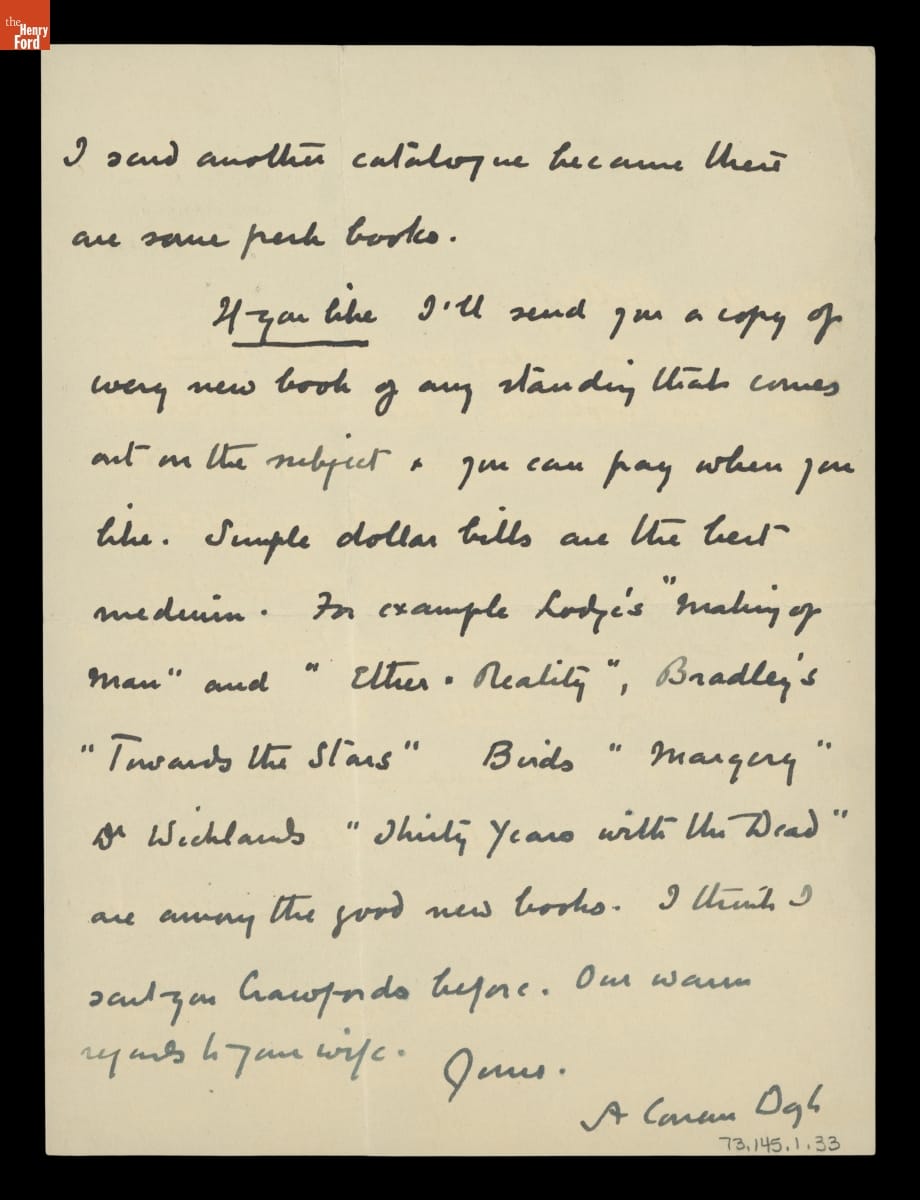 the
Henry
Ford
I send another catalogue because there
are some fresh books.
If you like I'll send you a copy of
every new book of any standing that comes
out on the subject & you can pay when you
like. Simple dollar bills are the best
medium. For example Lodge's "Making of
Man" and "Ether & Reality", Bradley's
"Towards the Stars" Birds "Margery"
Dr Wicklands "Thirty Years with the Dead"
are among the good new books. I think I
sent you Crawfords before. Our warm
regards to your wife.
Yours.
A Conan Doyle
73.145.1.33